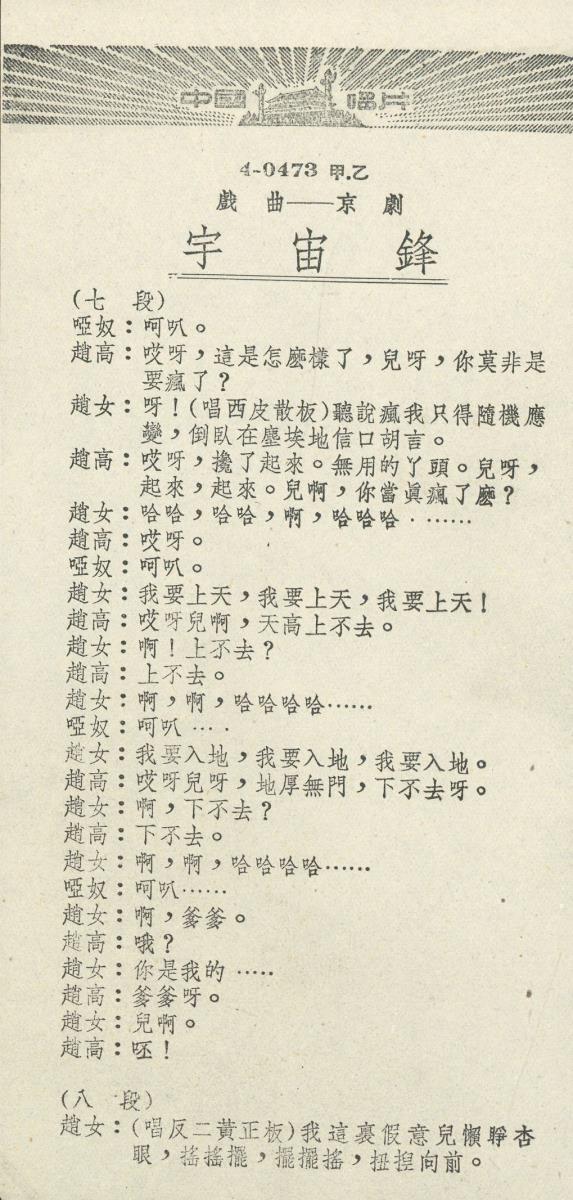 中國唱片
4-0473 甲.乙
戲曲——京劇
宇宙鋒
(七 段)
啞奴：呵叭。
趙高：哎呀，這是怎麽樣了，兒呀，你莫非是
要瘋了？
趙女：呀！(唱西皮散板)聽說瘋我只得隨機應
變，倒臥在塵埃地信口胡言。
趙高：哎呀，攙了起來。無用的丫頭。兒呀，
起來，起來。兒啊，你當眞瘋了麽？
趙女：哈哈，哈哈，啊，哈哈哈·……
趙高：哎呀。
啞奴：呵叭。
趙女：我要上天，我要上天，我要上天！
趙高：哎呀兒啊，天高上不去。
趙女：啊！上不去？
趙高：上不去。
趙女：啊，啊，哈哈哈哈……
啞奴：呵叭….
趙女：我要入地，我要入地，我要入地。
趙高：哎呀兒呀，地厚無門，下不去呀。
趙女：啊，下不去？
趙高：下不去。
趙女：啊，啊，哈哈哈哈……
啞奴：呵叭……
趙女：啊，爹爹。
趙高：哦？
趙女：你是我的 …..
趙高：爹爹呀。
趙女：兒啊。
趙高：呸！
(八 段)
趙女：(唱反二黃正板)我這裏假意兒懶睜杏
眼，搖搖擺，擺擺搖，扭揑向前。